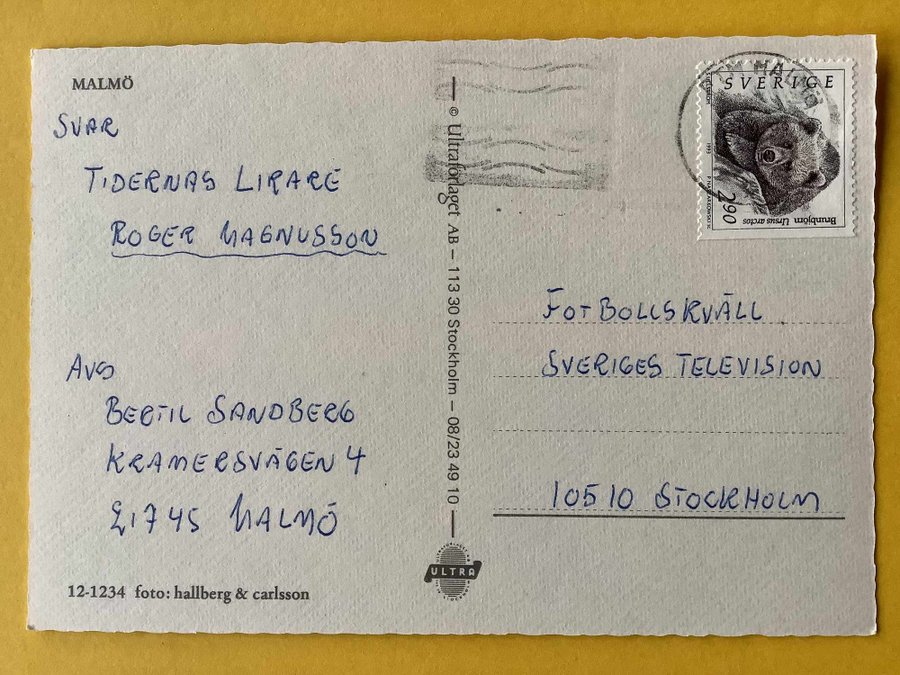 MALMÖ
SVAR
TIDERNAS LIRARE
ROGER MAGNUSSON
AVS
BERTIL SANDBERG
KRAMERSVÄGEN 4
21745 MALMÖ
12-1234 foto: hallberg & carlsson
© Ultraförlaget AB – 113 30 Stockholm – 08/23 49 10
ULTRA
MALMÖ
SVERIGE
1993
290
Brunbjörn Ursus arctos
FOTBOLLSKVÄLL
SVERIGES TELEVISION
10510 STOCKHOLM